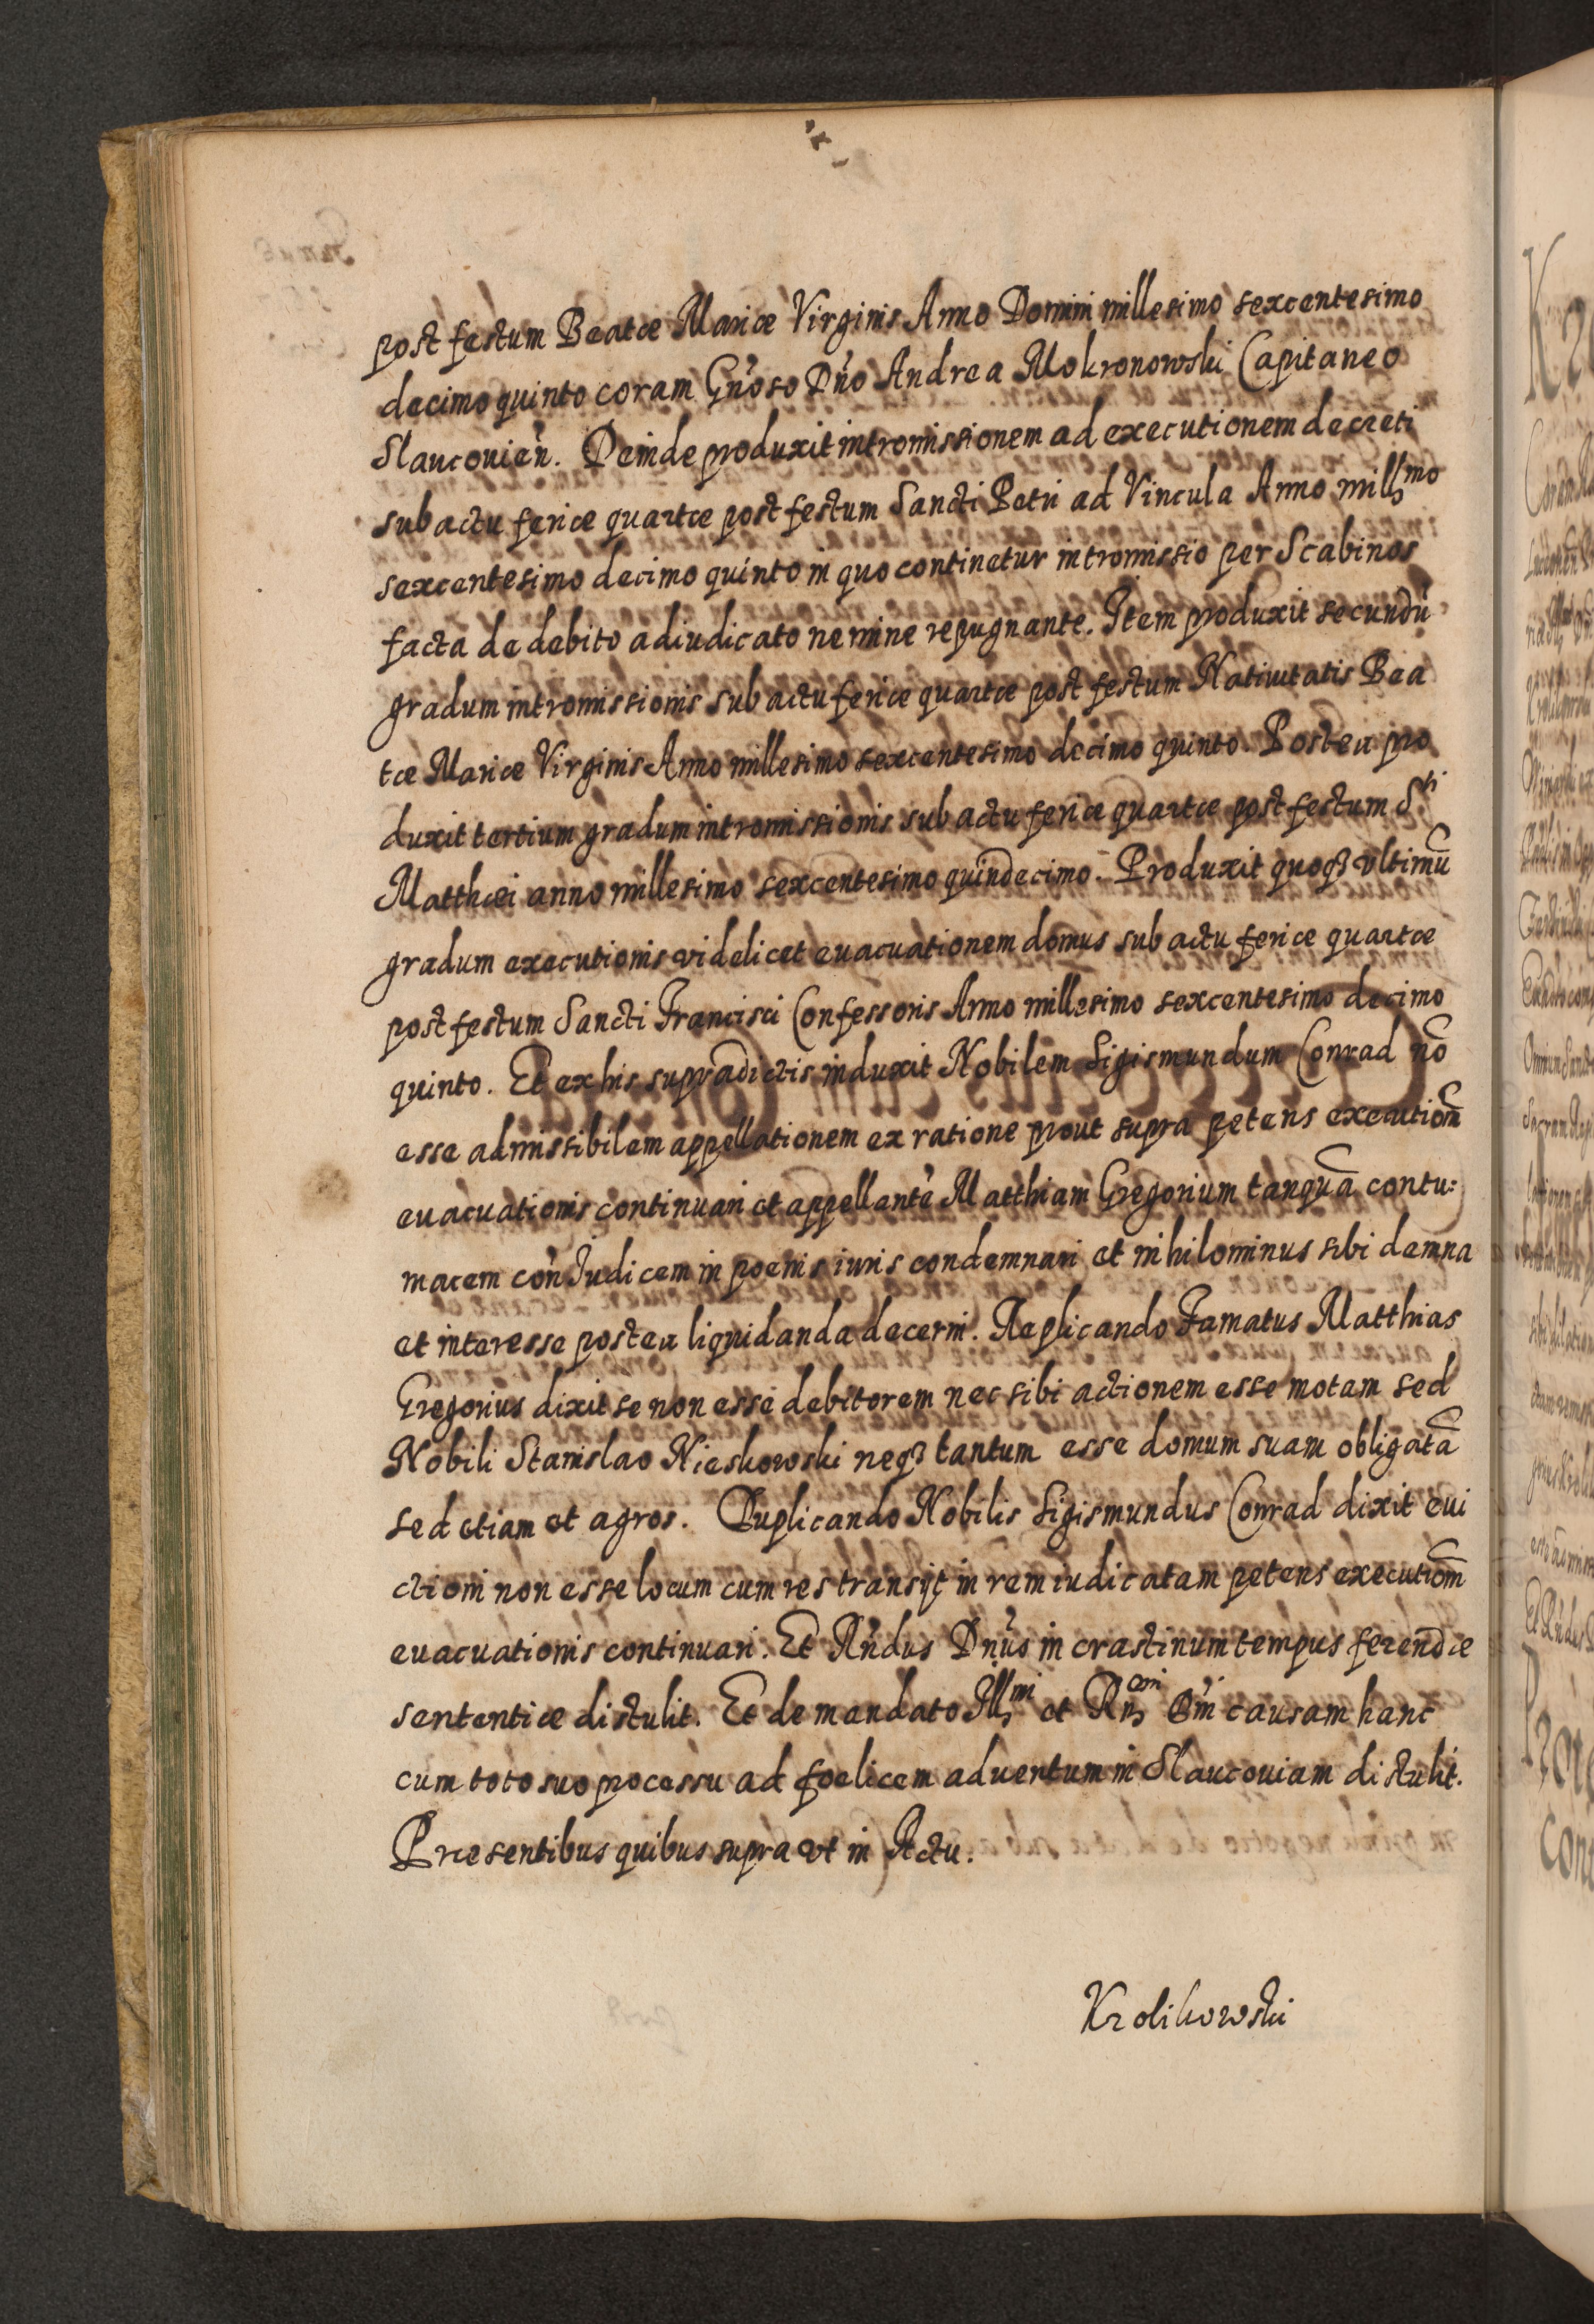 post festum Beatæ Mariæ Virginis Anno Domini millesimo sexcentesimo
decimo quinto coram Gñoso Dño Andrea Mokronowski Capitaneo
Slauconieñ. Deinde produxit intromissionem ad executionem decreti
sub actu feriæ quartæ post festum Sancti Petri ad Vincula Anno mill^mo
sexcentesimo decimo quinto in quo continetur intromissio per Scabinos
facta de debito adiudicato nemine repugnante. Item produxit secundũ
gradum intromissionis sub actu feriæ quartæ post festum Natiuitatis Bea
tæ Mariæ Virginis Anno millesimo sexcentesimo decimo quinto. Postea pro
duxit tertium gradum intromissionis sub actu feriæ quartæ post festum S^ti
Matthæi anno millesimo sexcentesimo quindecimo. Produxit quoqꝫ vltimũ
gradum executionis videlicet euacuationem domus sub actu feriæ quartæ
post festum Sancti Francisci Confessoris Anno millesimo sexcentesimo decimo
quinto. Et ex his supradictis induxit Nobilem Sigismundum Conrad nõ
esse admissibilem appellationem ex ratione prout supra petens executiom̃
euacuationis continuari et appellantẽ Matthiam Gregorium tanquã contu:
macem coñ Iudicem in poenis iuris condemnari et nihilominus sibi demna
et interesse postea liquidanda decerni. Replicando Famatus Matthias
Gregorius dixit se non esse debitorem nec sibi actionem esse motam sed
Nobili Stanislao Nieskowski neqꝫ tantum esse domum suam obligatã
sed etiam et agros. Duplicando Nobilis Sigismundus Conrad dixit eui
ctioni non esse locum cum res transijt in rem iudicatam petens executiom̃
euacuationis continuari. Et Rñdus Dñus in crastinum tempus ferendæ
sententiæ distulit. Et de mandato Ill^mi et Rñ^mi Dñi causam hanc
cum toto suo processu ad foelicem aduentum in Slauconiam distulit.
Præsentibus quibus supra vt in Actu.
Krolikowski